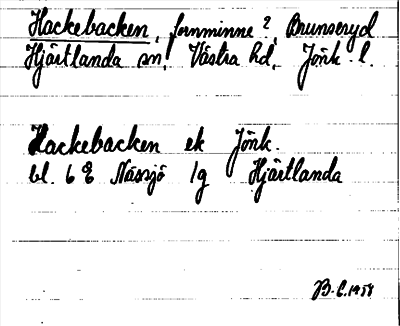 Hackebacken, fornminne?, Brunseryd
Hjärtlanda sn, Västra hd, Jönk. l.
Hackebacken ek Jönk.
bl. 6 E Nässjö 1g Hjärtlanda
B.C. 1958